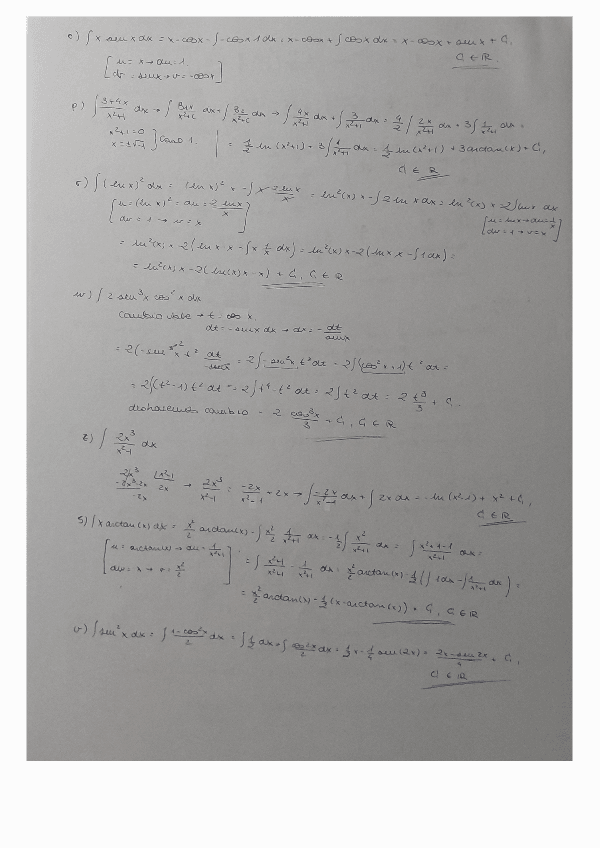 ∫ x sen x dx = x-cosx - ∫-cosx 1dx = x-cosx + ∫cosx dx = x-cosx + senx + C,
[u = x → du = 1. dv = senx → v = -cosx] C ∈ R
p) ∫ (3+4x)/(x²+1) dx → ∫ dx + ∫ dx → ∫ 4x/(x²+1) dx + ∫ 3/(x²+1) dx = 4/2 ∫ 2x/(x²+1) dx + 3∫ 1/(x²+1) dx =
x²+1=0 x=±√-1 } Caso 1. = ln(x²+1) + 3∫ 1/(x²+1) dx = ln(x²+1) + 3arctan(x) + C,
C ∈ R
∫(lnx)² dx = (lnx)² x - ∫ x 2lnx/x = ln²(x) x - ∫ 2 ln x dx = ln²(x) x - 2∫lnx dx
[u = (lnx)² = du = 2 lnx/x dv = 1 → v = x] [u = lnx → du = 1/x dv = 1 → v = x]
= ln²(x) x - 2(lnx · x - ∫ x 1/x dx) = ln²(x) x - 2(lnx x - ∫1dx) =
= ln²(x) x - 2(ln(x) x - x) + C, C ∈ R
w) ∫ 2 sen³x cos²x dx
Cambio vble → t = cos x
dt = -senx dx → dx = - dt/senx
= 2∫-sen³x t² dt/senx = 2∫-sen²x t² dt = 2∫(cos²x+1) t² dx =
= 2∫(t²-1) t² dt = 2∫t⁴-t² dt = 2∫t² dt = 2 t³/3 + C
deshacemos cambio = 2 cos³x/3 + C, C ∈ R
∫ 2x³/(x²-1) dx
2x³ |x²-1
-2x³-2x 2x → 2x³/(x²-1) = -2x/(x²-1) + 2x → ∫ -2x/(x²-1) dx + ∫ 2x dx = -ln(x²-1) + x² + C,
-2x
C ∈ R
s) ∫x arctan(x) dx = x²/2 arctan(x) - ∫ x²/2 1/(x²+1) dx = -1/2 ∫ x²/(x²+1) dx = ∫ (x²+1-1)/(x²+1) dx =
[u = arctan(x) → du = 1/(x²+1) dv = x → v = x²/2] = ∫ (x²+1)/(x²+1) - 1/(x²+1) dx = x²/2 arctan(x) - 1/2 (∫ 1dx - ∫ 1/(x²+1) dx) =
= x²/2 arctan(x) - 1/2 (x - arctan(x)) + C, C ∈ R
v) ∫sen²x dx = ∫ dx = ∫ 1/2 dx + ∫ cos2x/2 dx = 1/2 x - 1/4 sen(2x) = (2x-sen2x)/4 + C,
C ∈ R